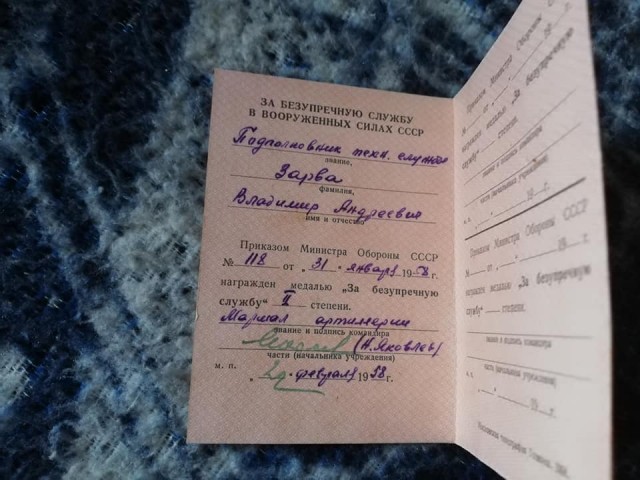 ЗА БЕЗУПРЕЧНУЮ СЛУЖБУ
В ВООРУЖЕННЫХ СИЛАХ СССР
Подполковник техн. службы
звание,
Зарва
фамилия,
Владимир Андреевич
имя и отчество
Приказом Министра Обороны СССР
№ 118 от „31" января 1958 г.
награжден медалью „За безупречную
службу" II степени.
Маршал артиллерии
звание и подпись командира
(Н. Яковлев)
части (начальника учреждения)
м. п.
февраля 1958 г.
Приказом Министра Обороны СССР
№ от „ " 19 г.
награжден медалью „За безупречную
службу" степени.
звание и подпись командира
части (начальника учреждения)
м. п.
„ " 19 г.
Приказом Министра Обороны СССР
№ от „ " 19 г.
награжден медалью „За безупречную
службу" степени.
звание и подпись командира
части (начальника учреждения)
19 г.